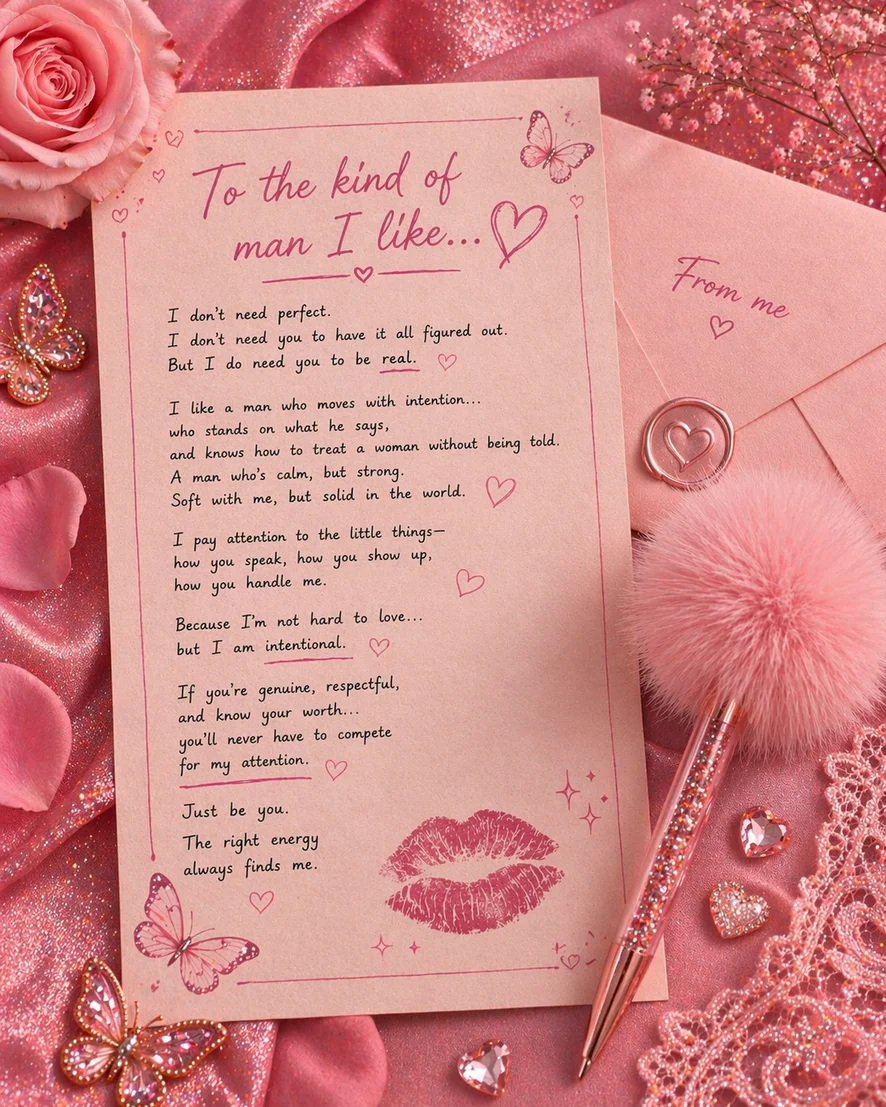 To the kind of
man I like...
I don't need perfect.
I don't need you to have it all figured out.
But I do need you to be real.
I like a man who moves with intention...
who stands on what he says,
and knows how to treat a woman without being told.
A man who's calm, but strong.
Soft with me, but solid in the world.
I pay attention to the little things—
how you speak, how you show up,
how you handle me.
Because I'm not hard to love...
but I am intentional.
If you're genuine, respectful,
and know your worth...
you'll never have to compete
for my attention.
Just be you.
The right energy
always finds me.
From me